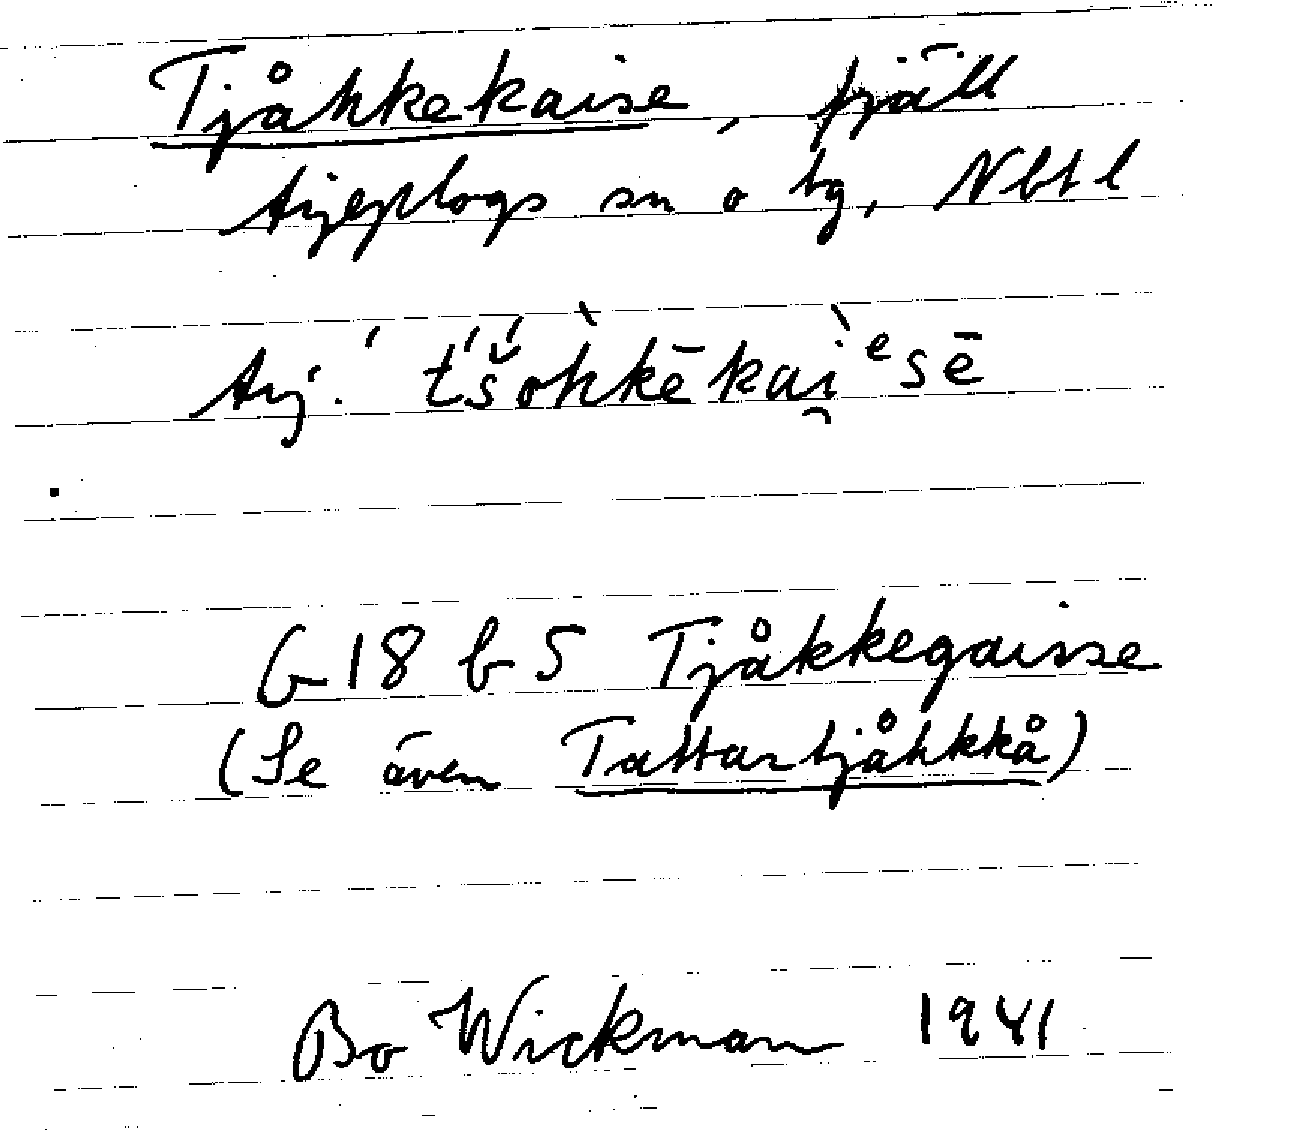 Tjåhkekaise, fjäll
Arjeplogs sn o tg, Nbt l
Arj. ′t́śšòhkēkài̯ᵉsē
G 18 b 5 Tjåkkegaisse
(Se även Tattartjåhkkå)
Bo Wickman 1941